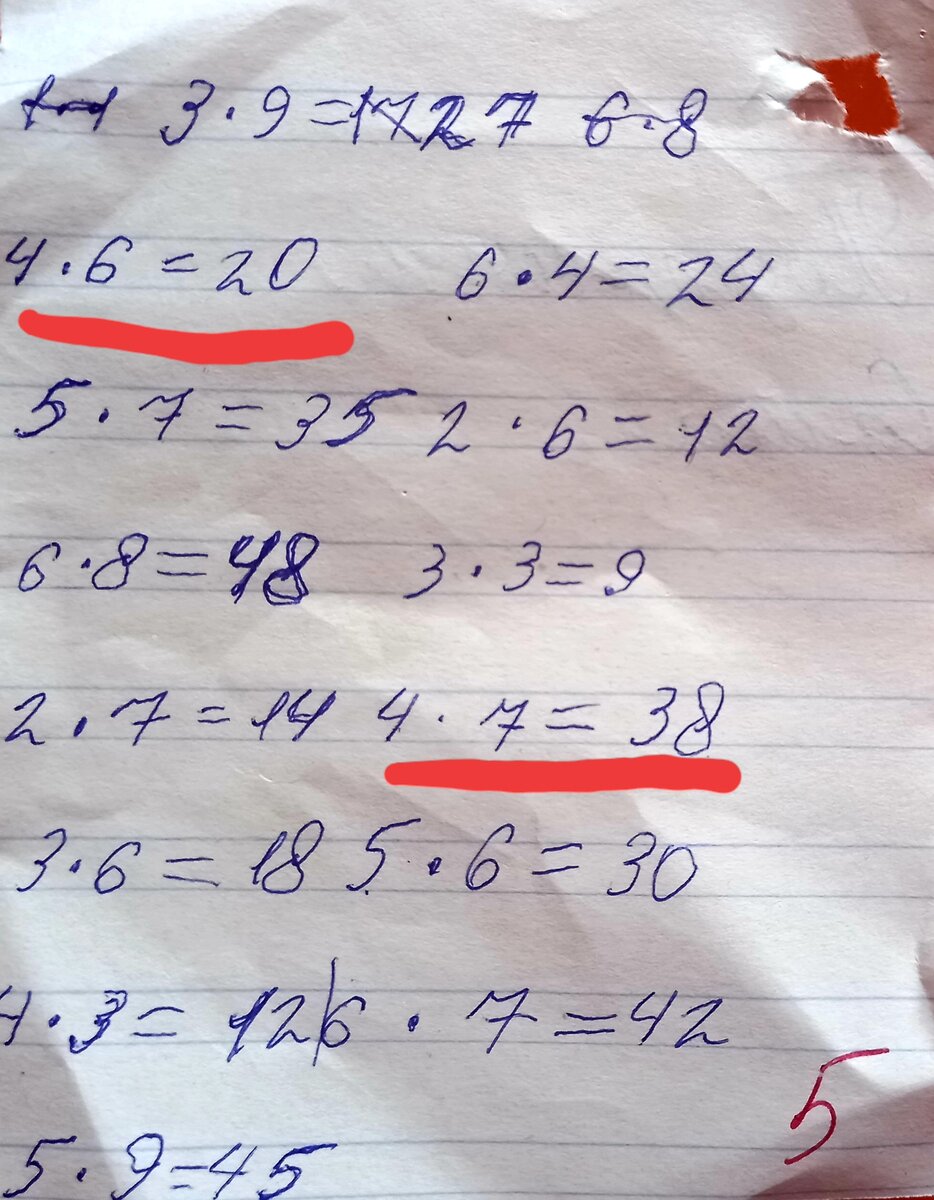 3·9=27 6·8
4·6=20 6·4=24
5·7=35 2·6=12
6·8=48 3·3=9
2·7=14 4·7=38
3·6=18 5·6=30
4·3=12 6·7=42
5
5·9=45